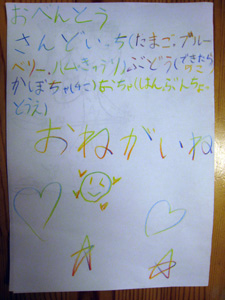 おべんとう
さんどいっち(たまご・ブルー
ベリー・ハムきゅうり)ぶどう(できたら
かぼちゃ(4こ)おちゃ(はんぶんちょ
とうえ)
おねがいね